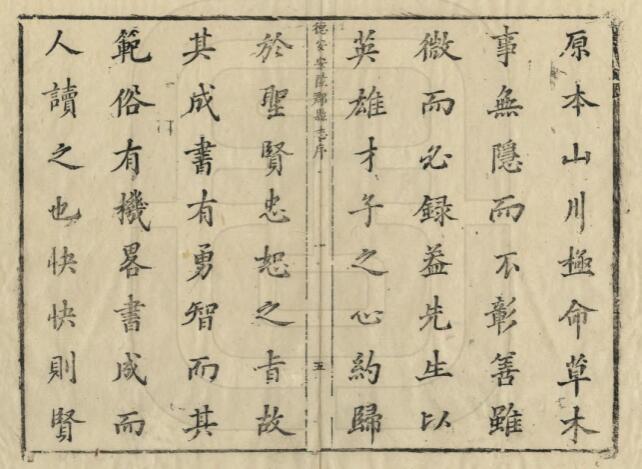 原本山川極命草木
事無隱而不彰善雖
微而必録葢先生以
英雄才子之心約歸
德安安陸郡縣志序
五
於聖賢忠恕之旨故
其成書有勇智而其
範俗有機畧書成而
人讀之也快快則賢